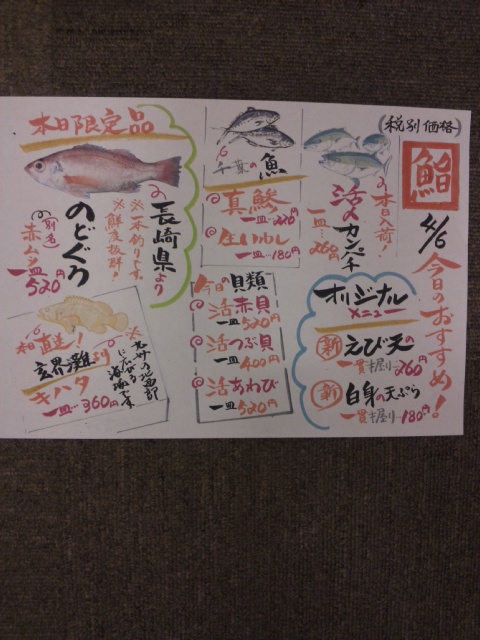 (税別価格)
鮨
4/6
今日のおすすめ!
本日入荷!
活〆カンパチ
一皿260円
オリジナル
メニュー
新 えび天の
一貫握り260円
新 白身の天ぷら
一貫握り180円
千葉の魚
真鯵
一皿220円
生いわし
一皿180円
今日の貝類
活赤貝
一皿520円
活つぶ貝
一皿400円
活あわび
一皿520円
本日限定品
長崎県より
※一本釣りです。
※鮮度抜群!
のどぐろ
(別名)
赤ムツ
一皿520円
相直送!
玄界灘より
キハタ
一皿360円
※九州の北西部
に広がる
海域です